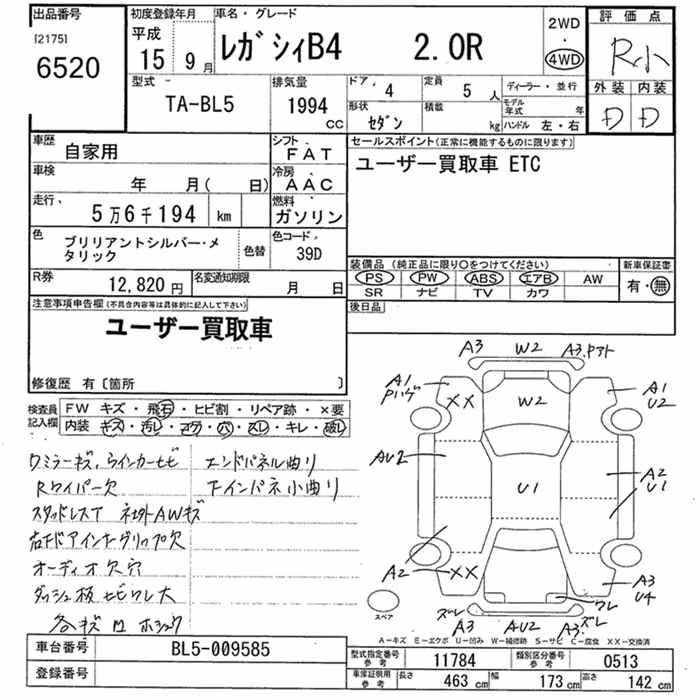 出品番号
[2175]
6520
初度登録年月
平成
15 9 月
車名・グレード
レガシィB4 2.0R
2WD
・
4WD
評価点
R小
外装 内装
D D
型式
TA-BL5
排気量
1994
CC
ドア、
4
定員
5 人
形状
セダン
積載
kg
ディーラー・並行
モデル年式 年
ハンドル 左・右
車歴
自家用
シフト
FAT
車検
年 月( 日)
冷房
AAC
走行、
5万6千194 km
燃料
ガソリン
色
ブリリアントシルバー・メ
タリック
色替
色コード
39D
R券
12,820 円
名変通知期限
月 日
セールスポイント(正常に機能するものに限ります)
ユーザー買取車 ETC
装備品(純正品に限り○をつけてください)
PS PW ABS エアB AW
SR ナビ TV カワ
新車保証書
有・無
後日品
注意事項申告欄(不具合内容等は具体的に記入して下さい)
ユーザー買取車
修復歴 有〔箇所 〕
検査員記入欄
FW キズ・飛石・ヒビ割・リペア跡・×要
内装 キズ・汚レ・コゲ・穴・スレ・キレ・破レ
ワミラーキズ、ウインカーヒビ エンドパネル曲り
Rワイパー欠 下インパネ小曲り
スタッドレスT 社外AWキズ
右Fドアインナーグリップ欠
オーディオ欠穴
ダッシュ板ヒビワレ大
各キズ凹ホシュウ
A3 W2 A3.
A1 XX W2 A1
U2
AU2 U1 A2
U1
A2 XX ワレ A3
U4
ズレ A3 AU2 A3. ズレ
スペア
A-キズ E-エクボ U-凹み W-補修跡 S-サビ C-腐食 XX-交換済
車台番号
BL5-009585
登録番号
型式指定番号
参考
11784
類別区分番号
参考
0513
車庫証明用
参考
長さ
463 cm
幅
173 cm
高さ
142 cm